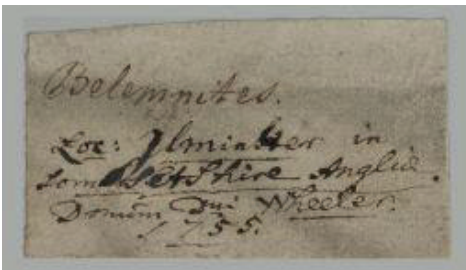 Belemnites.
Loc: Ilminster in
Somersetshire Angliæ.
Donum Dni Wheeler.
1755.